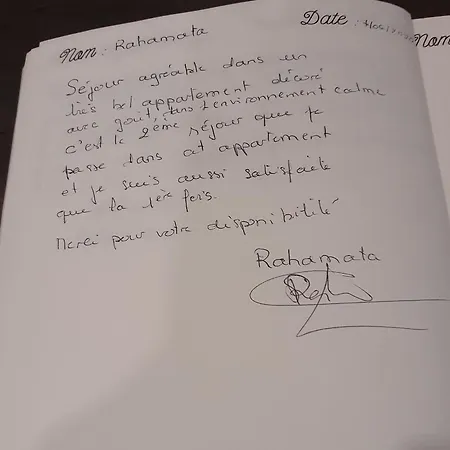 Nom : Rahamata
Date :
Nom
Séjour agréable dans un
très bel appartement décoré
avec goût, dans l'environnement calme
c'est le 2ème séjour que je
passe dans cet appartement
et je suis aussi satisfaite
que la 1ère fois.
Merci pour votre disponibilité
Rahamata